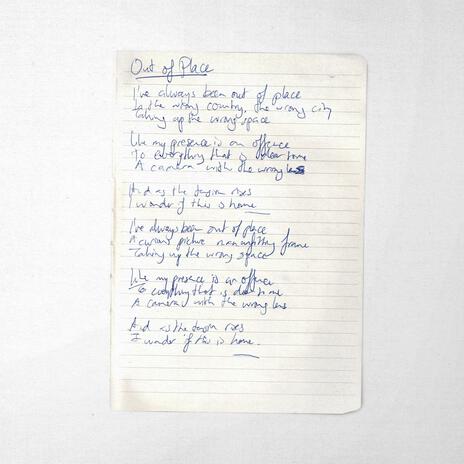 Out of Place
I've always been out of place
In the wrong country, the wrong city
Taking up the wrong space
Like my presence is an offence
To everything that is dear to me
A camera with the wrong lens
And as the tension rises
I wonder if this is home
I've always been out of place
A curious picture in an ill fitting frame
Taking up the wrong space
Like my presence is an offence
To everything that is dear to me
A camera with the wrong lens
And as the tension rises
I wonder if this is home.